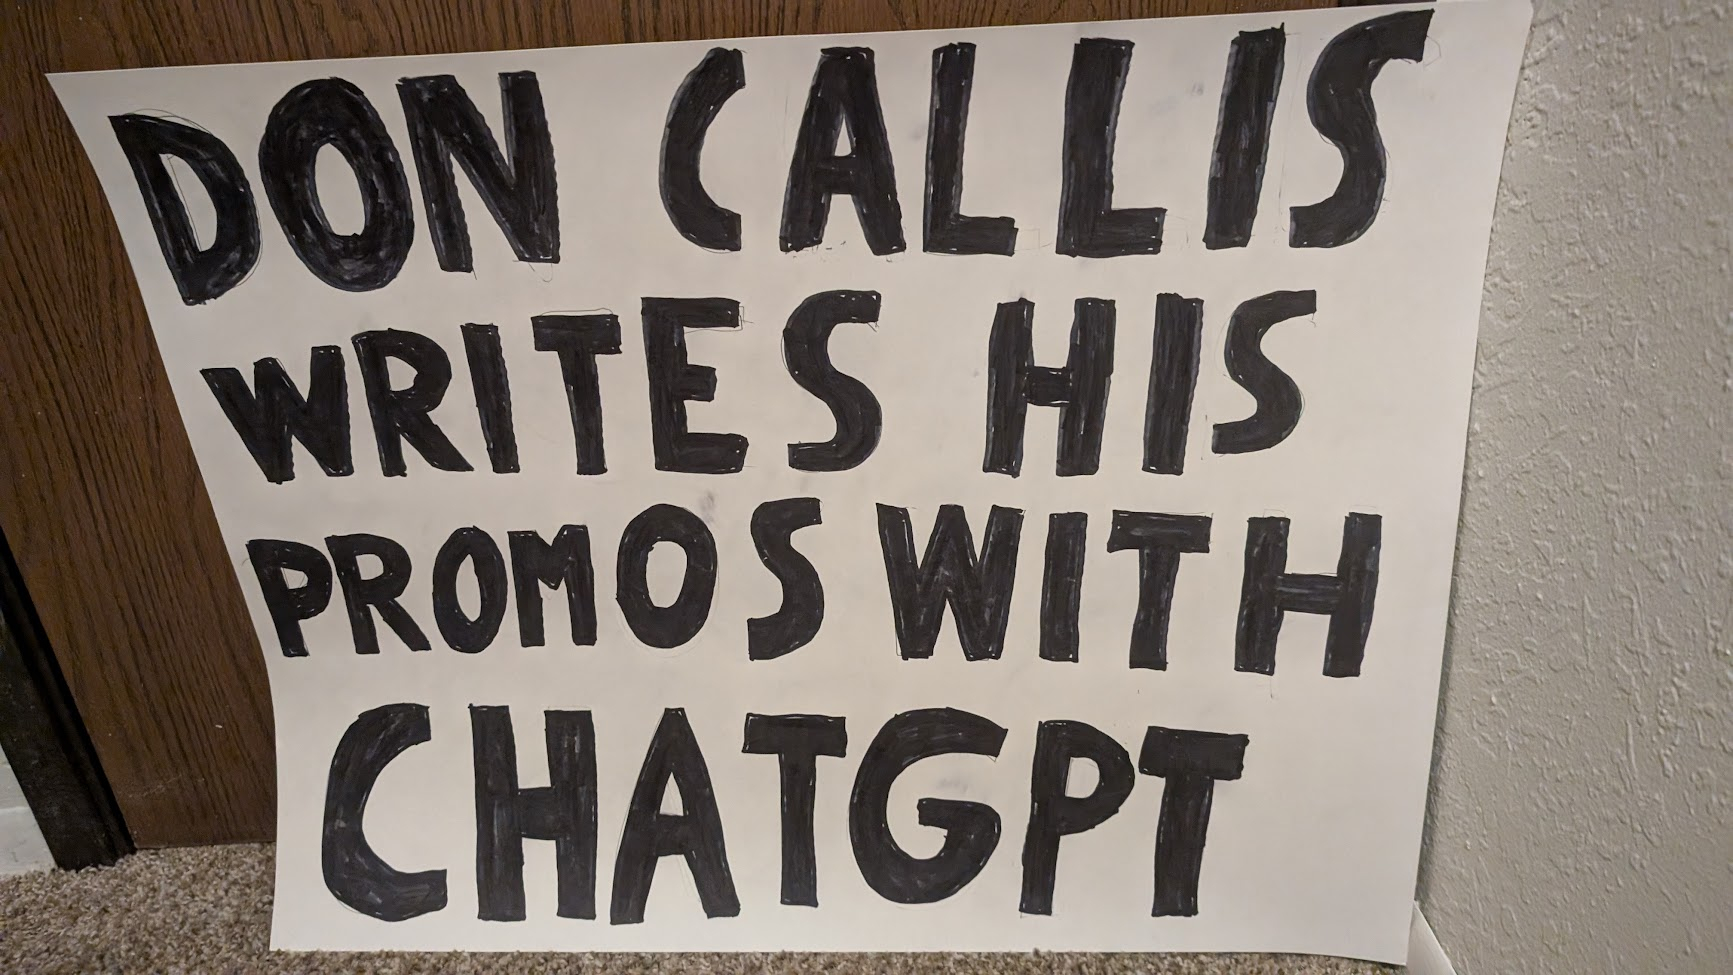 DON CALLIS
WRITES HIS
PROMOS WITH
CHATGPT